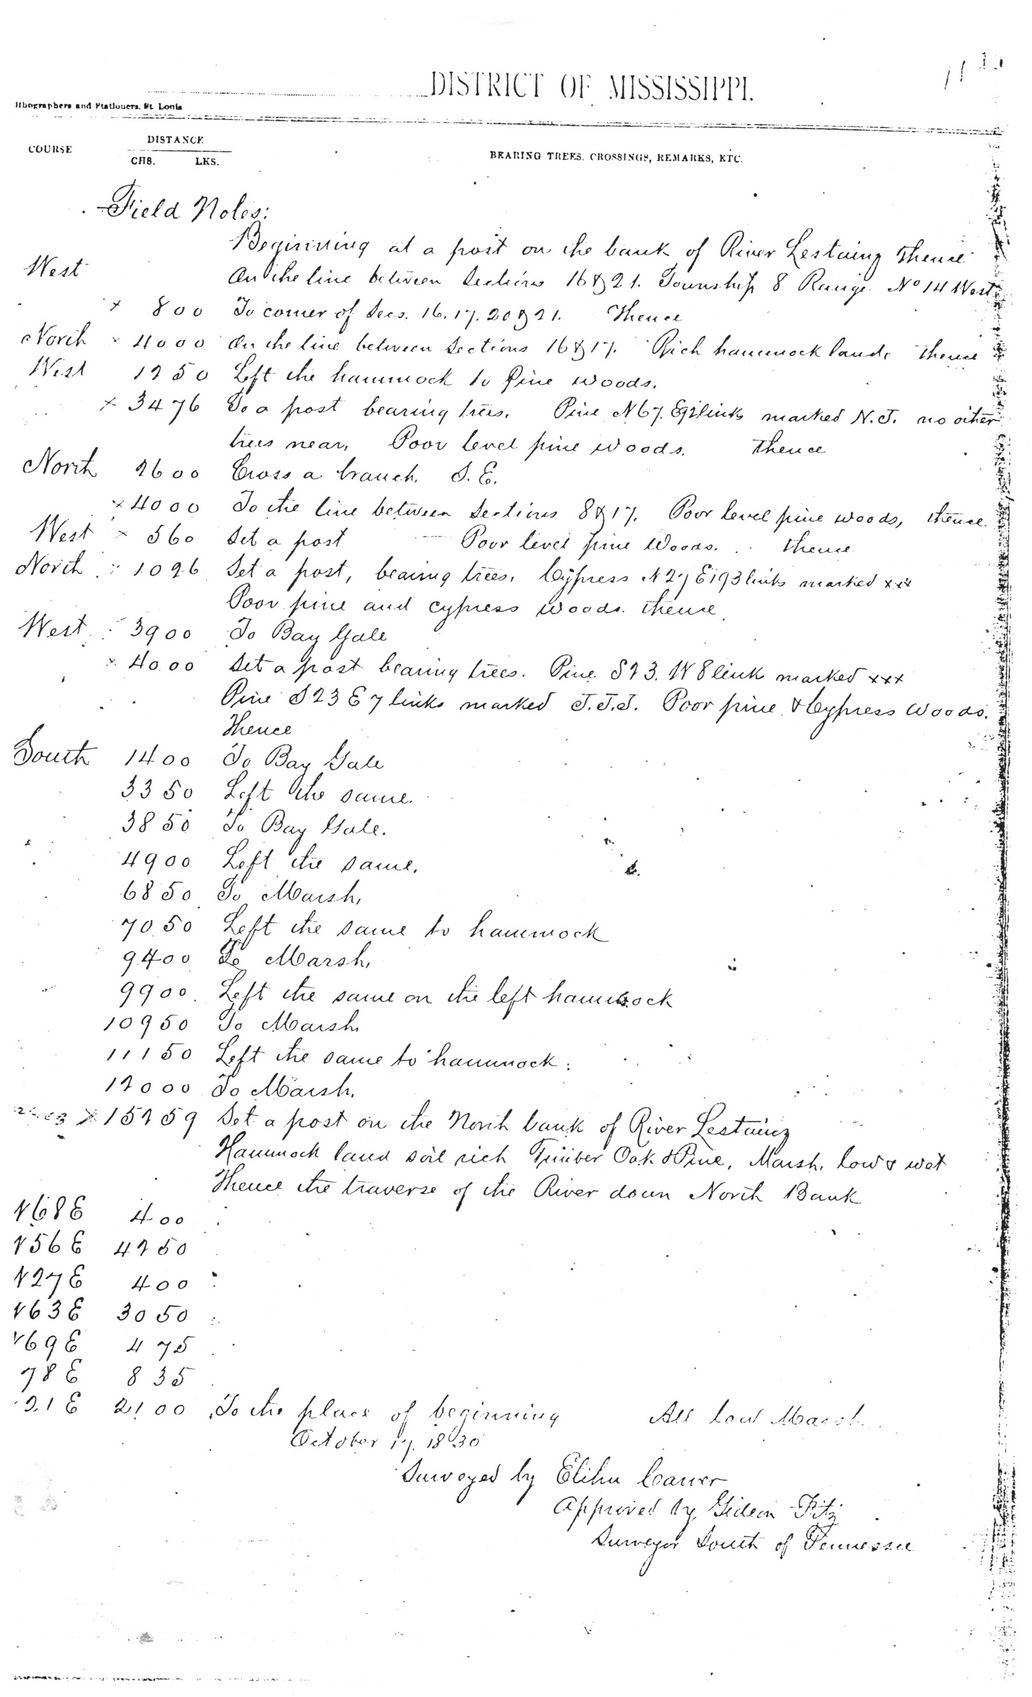 DISTRICT OF MISSISSIPPI.
Lithographers and Stationers, St. Louis
COURSE DISTANCE CHS. LKS. BEARING TREES, CROSSINGS, REMARKS, ETC.
Field Notes:
Beginning at a post on the bank of River Lestaing thence
West On the line between Sections 16 & 21. Township 8 Range No 14 West
x 8 00 To corner of Secs. 16. 17. 20 & 21. Thence
North x 40 00 On the line between Sections 16 & 17. Rich hammock land. Thence
West 12 50 Left the hammock to Pine woods.
x 34 76 To a post bearing trees. Pine N 67. E 92 links marked N.J. no other
trees near, Poor level pine woods. Thence
North 26 00 Cross a branch. S.E.
x 40 00 To the line between Sections 8 & 17. Poor level pine woods, thence
West x 5 60 Set a post Poor level pine Woods. thence
North 10 26 Set a post, bearing trees. Cypress N 27 E 193 links marked xxx
Poor pine and cypress woods. thence.
West 39 00 To Bay Gale
x 40 00 Set a post bearing trees. Pine S 23. W 8 link marked xxx
Pine S 23 E 7 links marked J.J.J. Poor pine & Cypress Woods.
Thence
South 14 00 To Bay Gale
33 50 Left the same.
38 50 To Bay Gale.
49 00 Left the same.
68 50 To Marsh,
70 50 Left the same to hammock
94 00 To Marsh,
99 00 Left the same on the left hammock
109 50 To Marsh
111 50 Left the same to hammock.
120 00 To Marsh.
x 152 59 Set a post on the North bank of River Lestaing
Hammock land soil rich Timber Oak & Pine, Marsh, low & wet
Thence the traverse of the River down North Bank
N 68 E 4 00
N 56 E 42 50
N 27 E 4 00
N 63 E 30 50
N 69 E 4 75
78 E 8 35
21 E 21 00 To the place of beginning All low Marsh
October 17, 1830
Surveyed by Elihu Carver
Approved by Gideon Fitz
Surveyor South of Tennessee